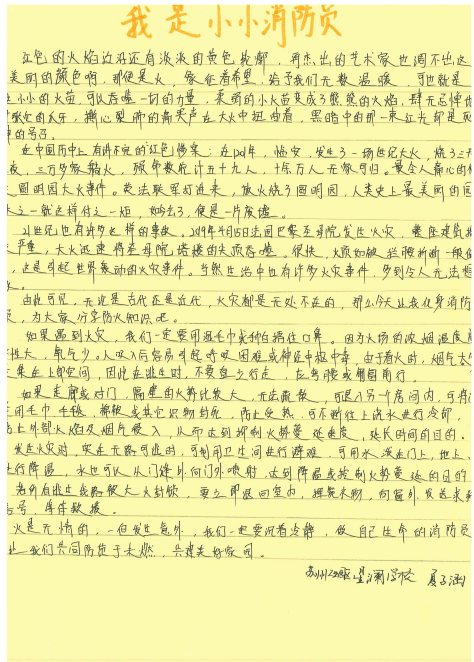 我是小小消防员
红色的火焰边沿还有淡淡的黄色轮廓，再杰出的艺术家也调不出这
美丽的颜色啊，那便是火，象征着希望，给予我们无数温暖，可也就是
小小的火苗，可以吞噬一切的力量，柔弱的小火苗变成了熊熊的火焰，肆无忌惮
撕心裂肺的声在大火中扭曲着，黑暗中的那一束红光都是
的号召。
在中国历史上有讲不完的红色：在年，临安，发生了一场世纪大火，烧了三
夜，三万多家，五十九人，十万人无家可归。最令人痛心的
圆明园大火事件。英法联军打进来，放火烧了圆明园，人类史上最美丽的园
之一就这样付之一炬，如今，便是一片废墟。
21世纪也有许多这样的事故。2019年4月15日法国巴黎圣母院发生火灾，整座建筑
严重，大火迅速将圣母院塔楼的尖顶吞噬。很快，尖顶如被拦腰折断一般
，这是引起世界轰动的火灾事件。当然生活中也有许多火灾事件，多到令人无法
由此可见，无论是古代还是近代，火灾都是无处不在的，那么今天让我化身消防
员，为大家分享防火知识吧。
如果遇到火灾，我们一定要用湿毛巾或捂住口鼻。因为火场的浓烟温度
性大，氧气少，人吸入后容易引起呼吸困难或神经中枢中毒，由于着火时，烟气
集在上部空间，因此在逃生时，不要直立行走，应弯腰或匍匐前行。
如果走廊或对门、隔壁的火势比较大，无法疏散，可退入另一个房间内，可将
用毛巾、毛毯、棉被或其它织物封死，防止受热，可不断往上浇水进行冷却，
防止外部火焰及烟气侵入，从而达到抑制火势蔓延速度，延长时间的目的。
发生火灾时，实在无路可逃时，可利用卫生间进行避难，可用水泼在门上、地上，
进行降温，水也可以从门缝处向门外喷射，达到降温或控制火势蔓延的目的
若所有逃生线路被大火封锁，要立即退回室内，向窗外发送求
信号，等待救援。
火是无情的，一但发生意外，我们一定要沉着冷静，做自己生命的消防员
让我们共同防患于未燃，共建美好家园。
苏州星澜学校 夏子涵